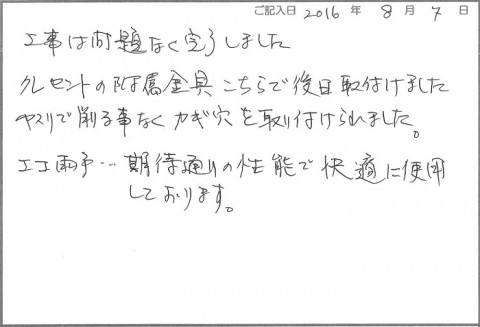 ご記入日 2016 年 8 月 7 日
工事は問題なく完了しました
クレセントの附属金具こちらで後日取付けました
ヤスリで削る事なくカギ穴を取り付けられました。
エコ雨戸… 期待通りの性能で快適に使用
しております。